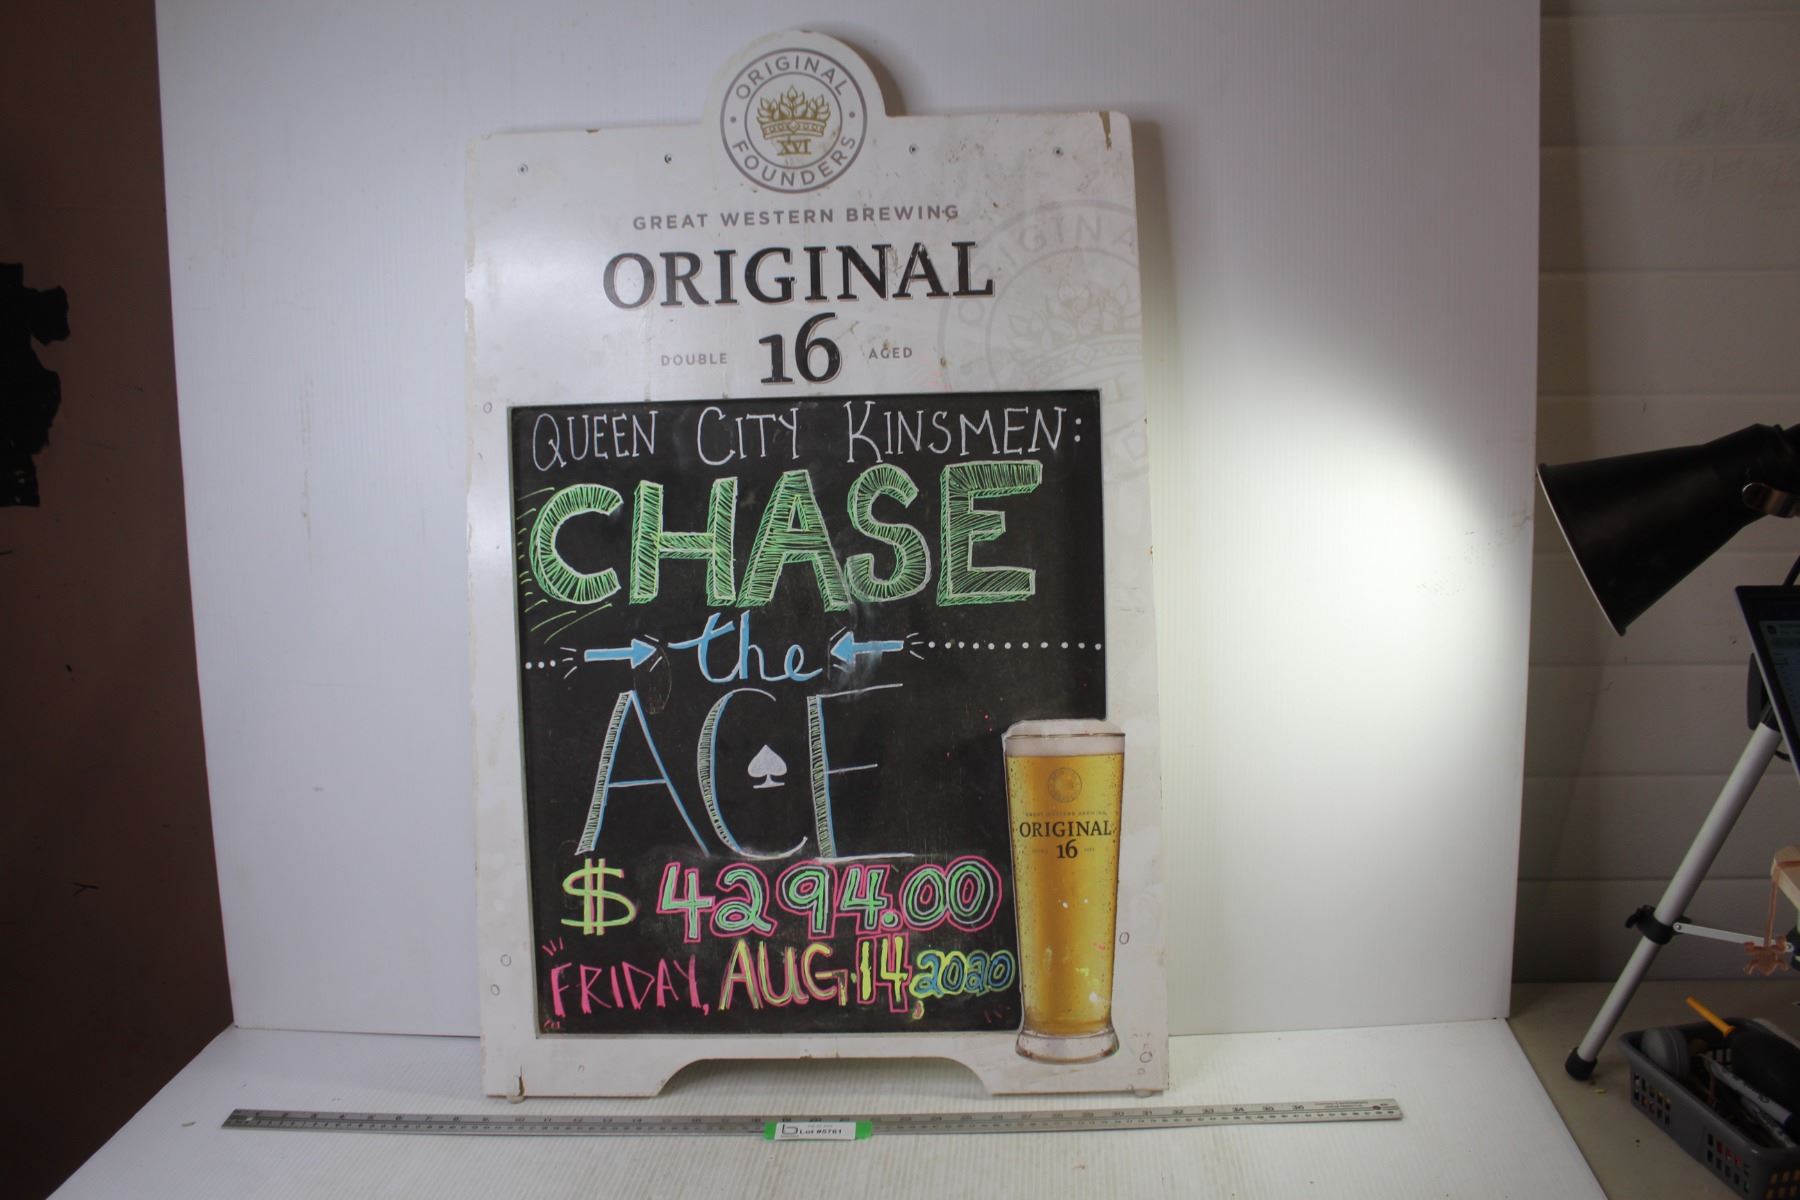 ORIGINAL
XVI
FOUNDERS
GREAT WESTERN BREWING
ORIGINAL
DOUBLE 16 AGED
QUEEN CITY KINSMEN:
CHASE
the
ACE
$4294.00
FRIDAY, AUG. 14, 2020
GREAT WESTERN BREWING
ORIGINAL
16
Lot #5761